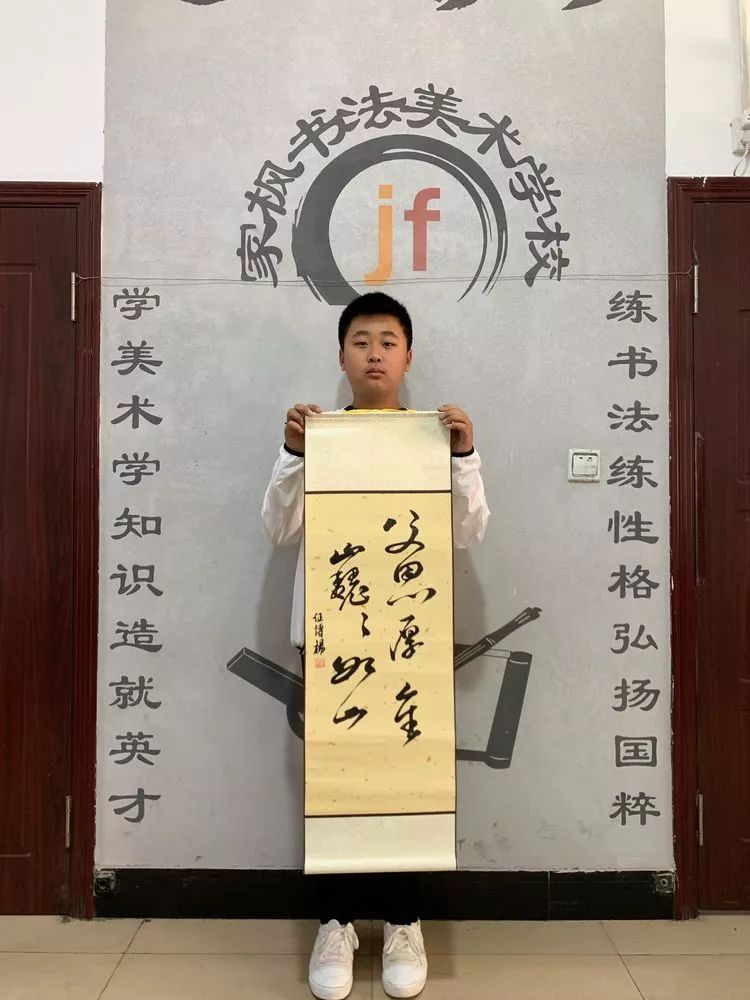 家枫书法美术学校
jf
练书法练性格弘扬国粹
学美术学知识造就英才
父恩厚重
巍々如山
任博楊